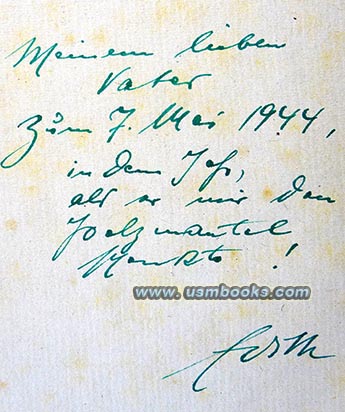 Meinem lieben
Vater
Zum 7. Mai 1944,
in dem Jahr,
als er mir den
Pelzmantel
schenkte !
www.usmbooks.com
Edith